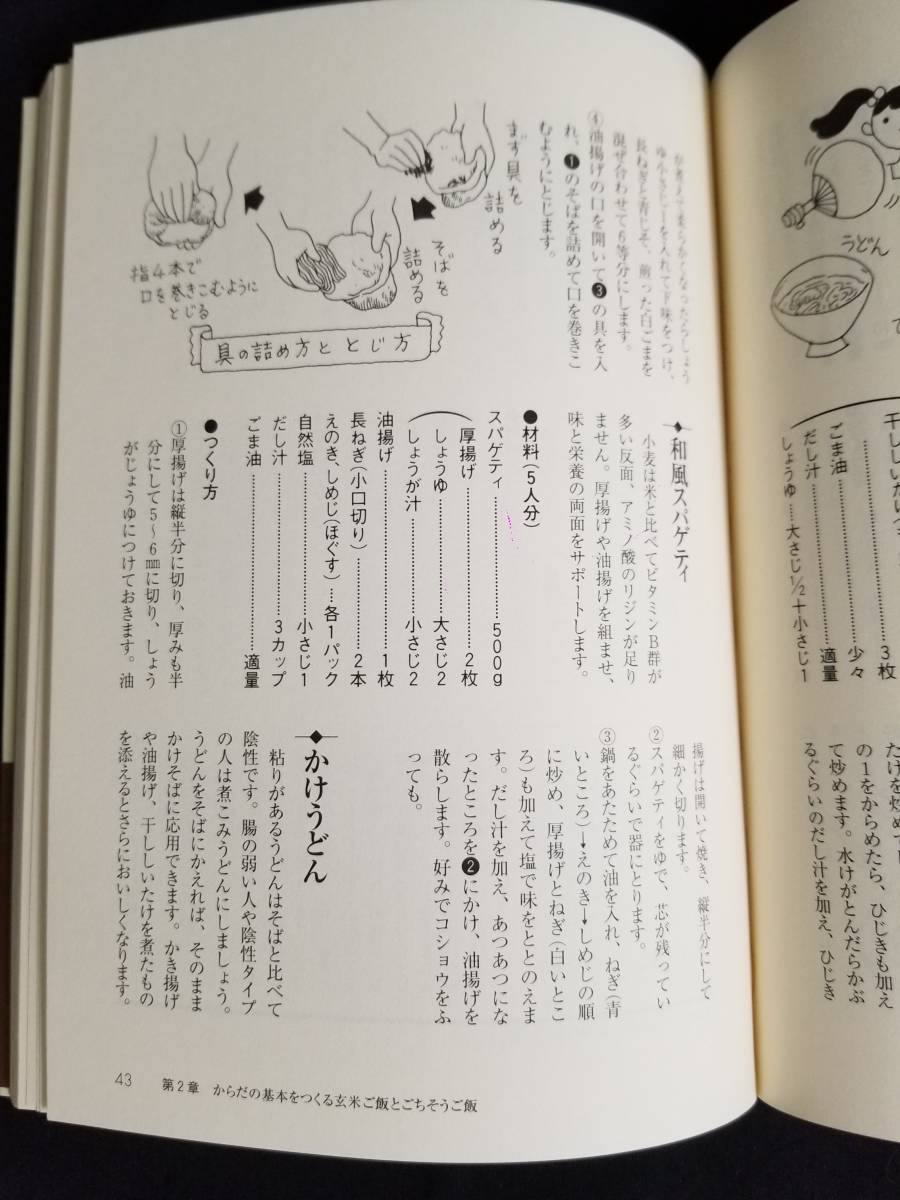 うどん
3枚
ごま油……………少々
だし汁……………適量
しょうゆ…大さじ1/2+小さじ1
の1をからめたら、ひじきも加え
て炒めます。水けがとんだらかぶ
るぐらいのだし汁を加え、ひじき
が煮えて柔らかくなったらしょう
ゆ小さじ1を入れて下味をつけ、
長ねぎと青じそ、煎った白ごまを
混ぜ合わせて6等分にします。
④油揚げの口を開いて❸の具を入
れ、❶のそばを詰めて口を巻きこ
むようにとじます。
まず具を
詰める
そばを
詰める
指4本で
口を巻きこむように
とじる
具の詰め方ととじ方
◆和風スパゲティ
小麦は米と比べてビタミンB群が
多い反面、アミノ酸のリジンが足り
ません。厚揚げや油揚げを組ませ、
味と栄養の両面をサポートします。
●材料(5人分)
スパゲティ……………500g
厚揚げ……………2枚
しょうゆ……………大さじ2
しょうが汁……………小さじ2
油揚げ……………1枚
長ねぎ(小口切り)……………2本
えのき、しめじ(ほぐす)…各1パック
自然塩……………小さじ1
だし汁……………3カップ
ごま油……………適量
●つくり方
①厚揚げは縦半分に切り、厚みも半
分にして5~6㎜に切り、しょう
がじょうゆにつけておきます。油
揚げは開いて焼き、縦半分にして
細かく切ります。
②スパゲティをゆで、芯が残ってい
るぐらいで器にとります。
③鍋をあたためて油を入れ、ねぎ(青
いところ)→えのき→しめじの順
に炒め、厚揚げとねぎ(白いとこ
ろ)も加えて塩で味をととのえま
す。だし汁を加え、あつあつにな
ったところを❷にかけ、油揚げを
散らします。好みでコショウをふ
っても。
◆かけうどん
粘りがあるうどんはそばと比べて
陰性です。腸の弱い人や陰性タイプ
の人は煮こみうどんにしましょう。
うどんをそばにかえれば、そのまま
かけそばに応用できます。かき揚げ
や油揚げ、干ししいたけを煮たもの
を添えるとさらにおいしくなります。
43 第2章 からだの基本をつくる玄米ご飯とごちそうご飯